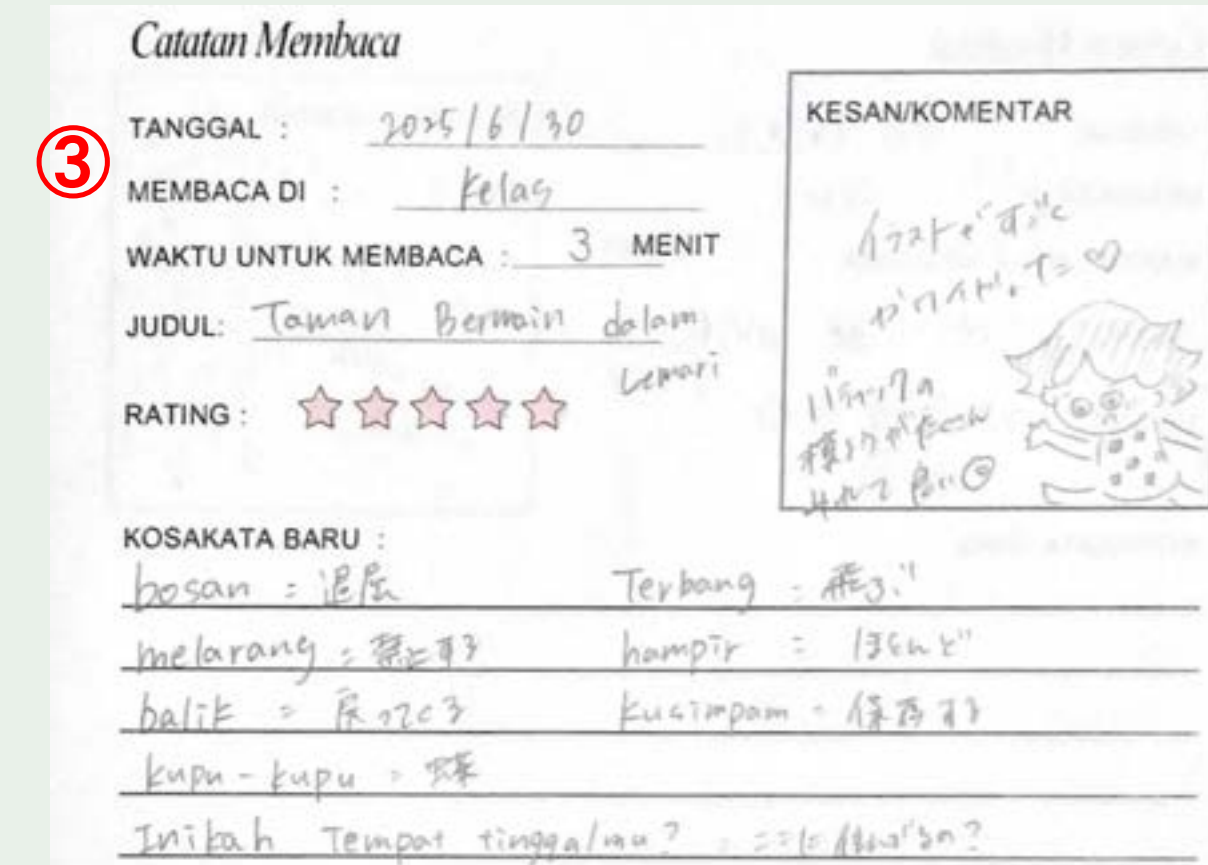 Catatan Membaca
③
TANGGAL : 2025/6/30
MEMBACA DI : kelas
WAKTU UNTUK MEMBACA : 3 MENIT
JUDUL: Taman Bermain dalam
Lemari
RATING :
KESAN/KOMENTAR
イラストがすごく
カワイかった♡
バティックの
模様がたくさん
みれて良い
KOSAKATA BARU :
bosan = 退屈 Terbang = 飛ぶ
melarang = 禁止する hampir = ほとんど
balik = 戻ってくる kusimpam = 保存する
kupu-kupu = 蝶
Inikah Tempat tinggalmu? = ここに住んでるの?